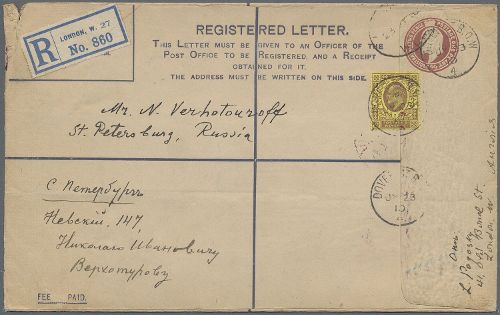 LONDON, W. 27
R No. 860
REGISTERED LETTER.
THIS LETTER MUST BE GIVEN TO AN OFFICER OF THE
POST OFFICE TO BE REGISTERED, AND A RECEIPT
OBTAINED FOR IT.
THE ADDRESS MUST BE WRITTEN ON THIS SIDE.
Mr. N. Verhotouroff
St. Petersburg, Russia
С Петербургъ
Невскій, 147,
Николаю Ивановичу
Верхотурову
FEE PAID.
DOVER
23
10
Bond St.
London W